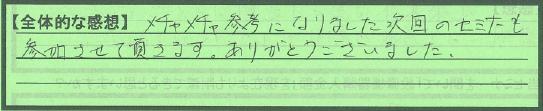 【全体的な感想】メチャメチャ参考になりました次回のセミナーも
参加させて頂きます。ありがとうございました、